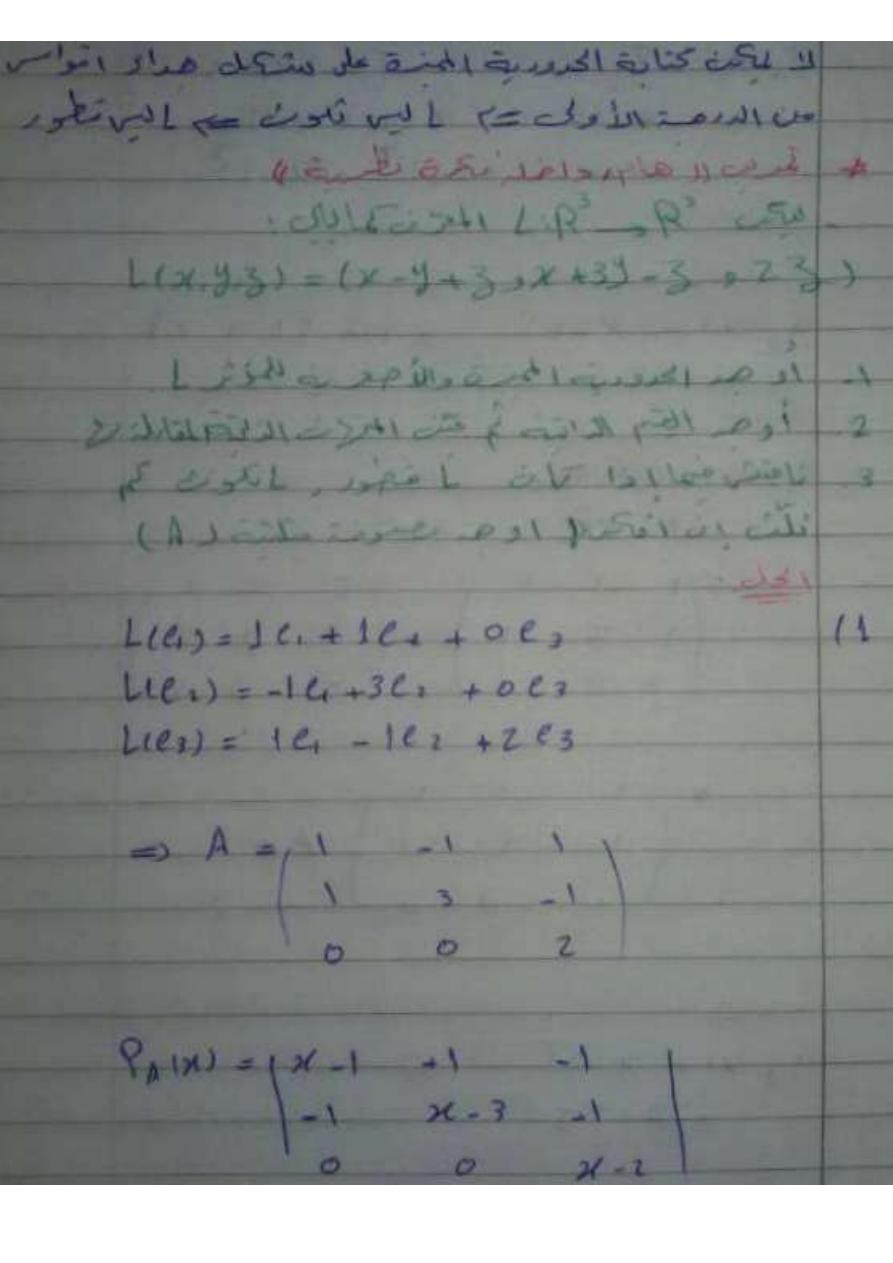 لا يمكن كتابة الحدودية المميزة على شكل جداء اقواس
من الدرجة الأولى => L ليس ثلوث => L ليس تطور
* تمرين (( هام، واخذ فكرة نظرية ))
ليكن L: R³ → R³ المعرف كما يلي:
L(x,y,z) = (x-y+z, x+3y-z, 2z)
1- أوجد الحدودية المميزة والأصغرية للمؤثر L
2- أوجد القيم الذاتية ثم عين المتجهات الذاتية المقابلة
3- ناقش فيما إذا كان L قطور،
(A)
الحل:
1) L(e₁) = 1e₁ + 1e₂ + 0e₃
L(e₂) = -1e₁ + 3e₂ + 0e₃
L(e₃) = 1e₁ - 1e₂ + 2e₃
=> A = ( 1 -1 1
1 3 -1
0 0 2 )
P_A(x) = | x-1 +1 -1
-1 x-3 -1
0 0 x-2 |